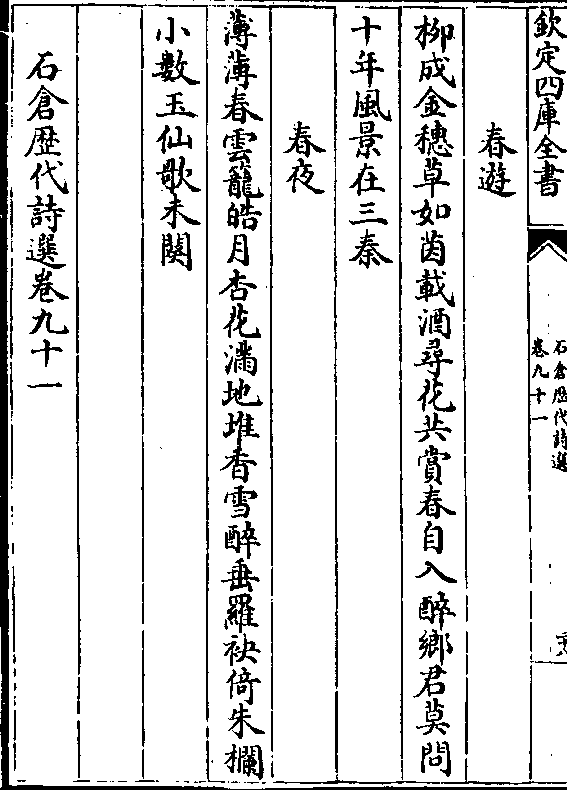 欽定四庫全書
石倉歴代詩選
卷九十一
春遊
栁成金穗草如茵載酒尋花共賞春自入醉鄉君莫問
十年風景在三秦
春夜
薄薄春雲籠皓月杏花滿地堆香雪醉垂羅袂倚朱欄
小數玉仙歌未闋
石倉歴代詩選卷九十一